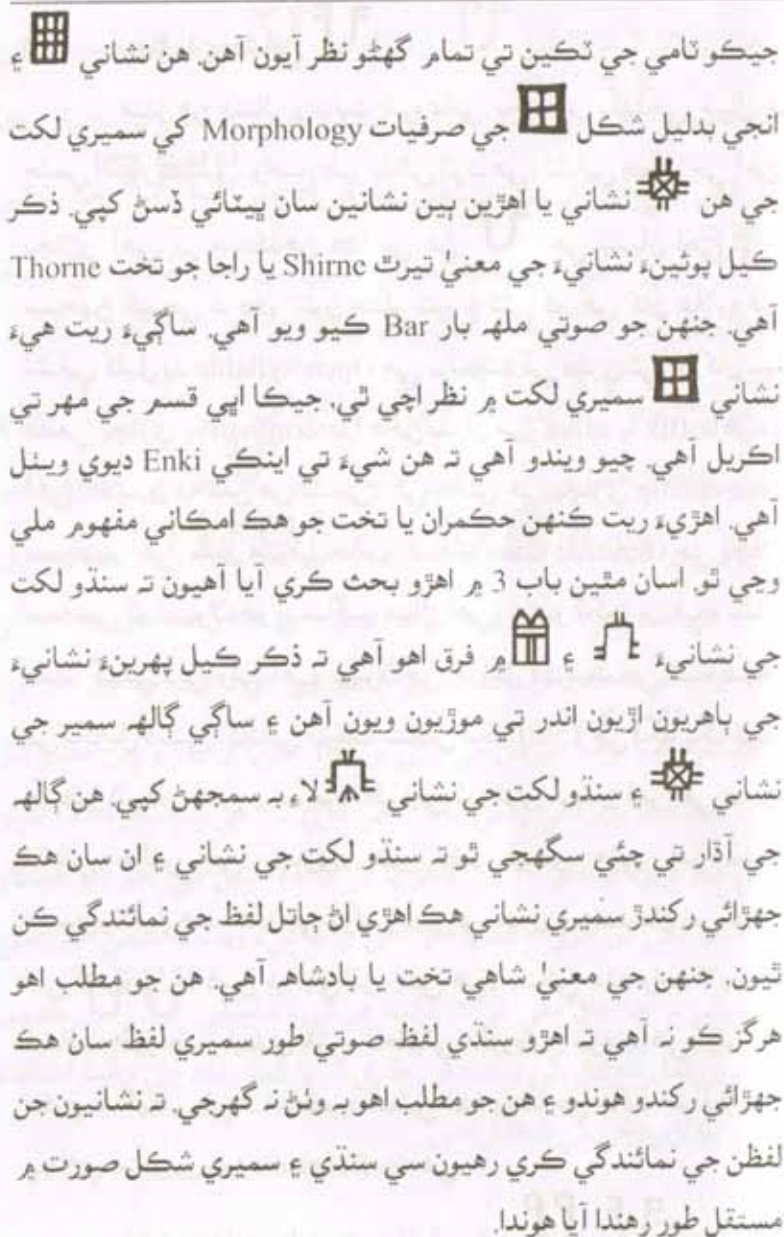 جيڪو ٽامي جي ٽڪين تي تمام گهڻو نظر آيون آهن. هن نشاني ۽
انجي بدليل شڪل جي صرفيات Morphology کي سميري لکت
جي هن نشاني يا اهڙين ٻين نشانين سان ڀيٽائي ڏسڻ کپي. ذڪر
ڪيل پوئينءَ نشانيءَ جي معنيٰ تيرٿ Shirne يا راجا جو تخت Thorne
آهي. جنهن جو صوتي ملهہ بار Bar ڪيو ويو آهي. ساڳيءَ ريت هيءَ
نشاني سميري لکت ۾ نظر اچي ٿي. جيڪا اپي قسم جي مهر تي
اڪريل آهي. چيو ويندو آهي تہ هن شيءَ تي اينڪي Enki ديوي ويٺل
آهي. اهڙيءَ ريت ڪنهن حڪمران يا تخت جو هڪ امڪاني مفهوم ملي
وڃي ٿو. اسان مٿين باب 3 ۾ اهڙو بحث ڪري آيا آهيون تہ سنڌو لکت
جي نشانيءَ ۽ ۾ فرق اهو آهي تہ ذڪر ڪيل پهرينءَ نشانيءَ
جي ٻاهريون اڙيون اندر تي موڙيون ويون آهن ۽ ساڳي ڳالهہ سمير جي
نشاني ۽ سنڌو لکت جي نشاني لاءِ بہ سمجهڻ کپي. هن ڳالهہ
جي آڌار تي چئي سگهجي ٿو تہ سنڌو لکت جي نشاني ۽ ان سان هڪ
جهڙائي رکندڙ سميري نشاني هڪ اهڙي اڻ ڄاتل لفظ جي نمائندگي ڪن
ٿيون. جنهن جي معنيٰ شاهي تخت يا بادشاهہ آهي. هن جو مطلب اهو
هرگز ڪو نہ آهي تہ اهڙو سنڌي لفظ صوتي طور سميري لفظ سان هڪ
جهڙائي رکندو هوندو ۽ هن جو مطلب اهو بہ وٺڻ نہ گهرجي. تہ نشانيون جن
لفظن جي نمائندگي ڪري رهيون سي سنڌي ۽ سميري شڪل صورت ۾
مستقل طور رهندا آيا هوندا.